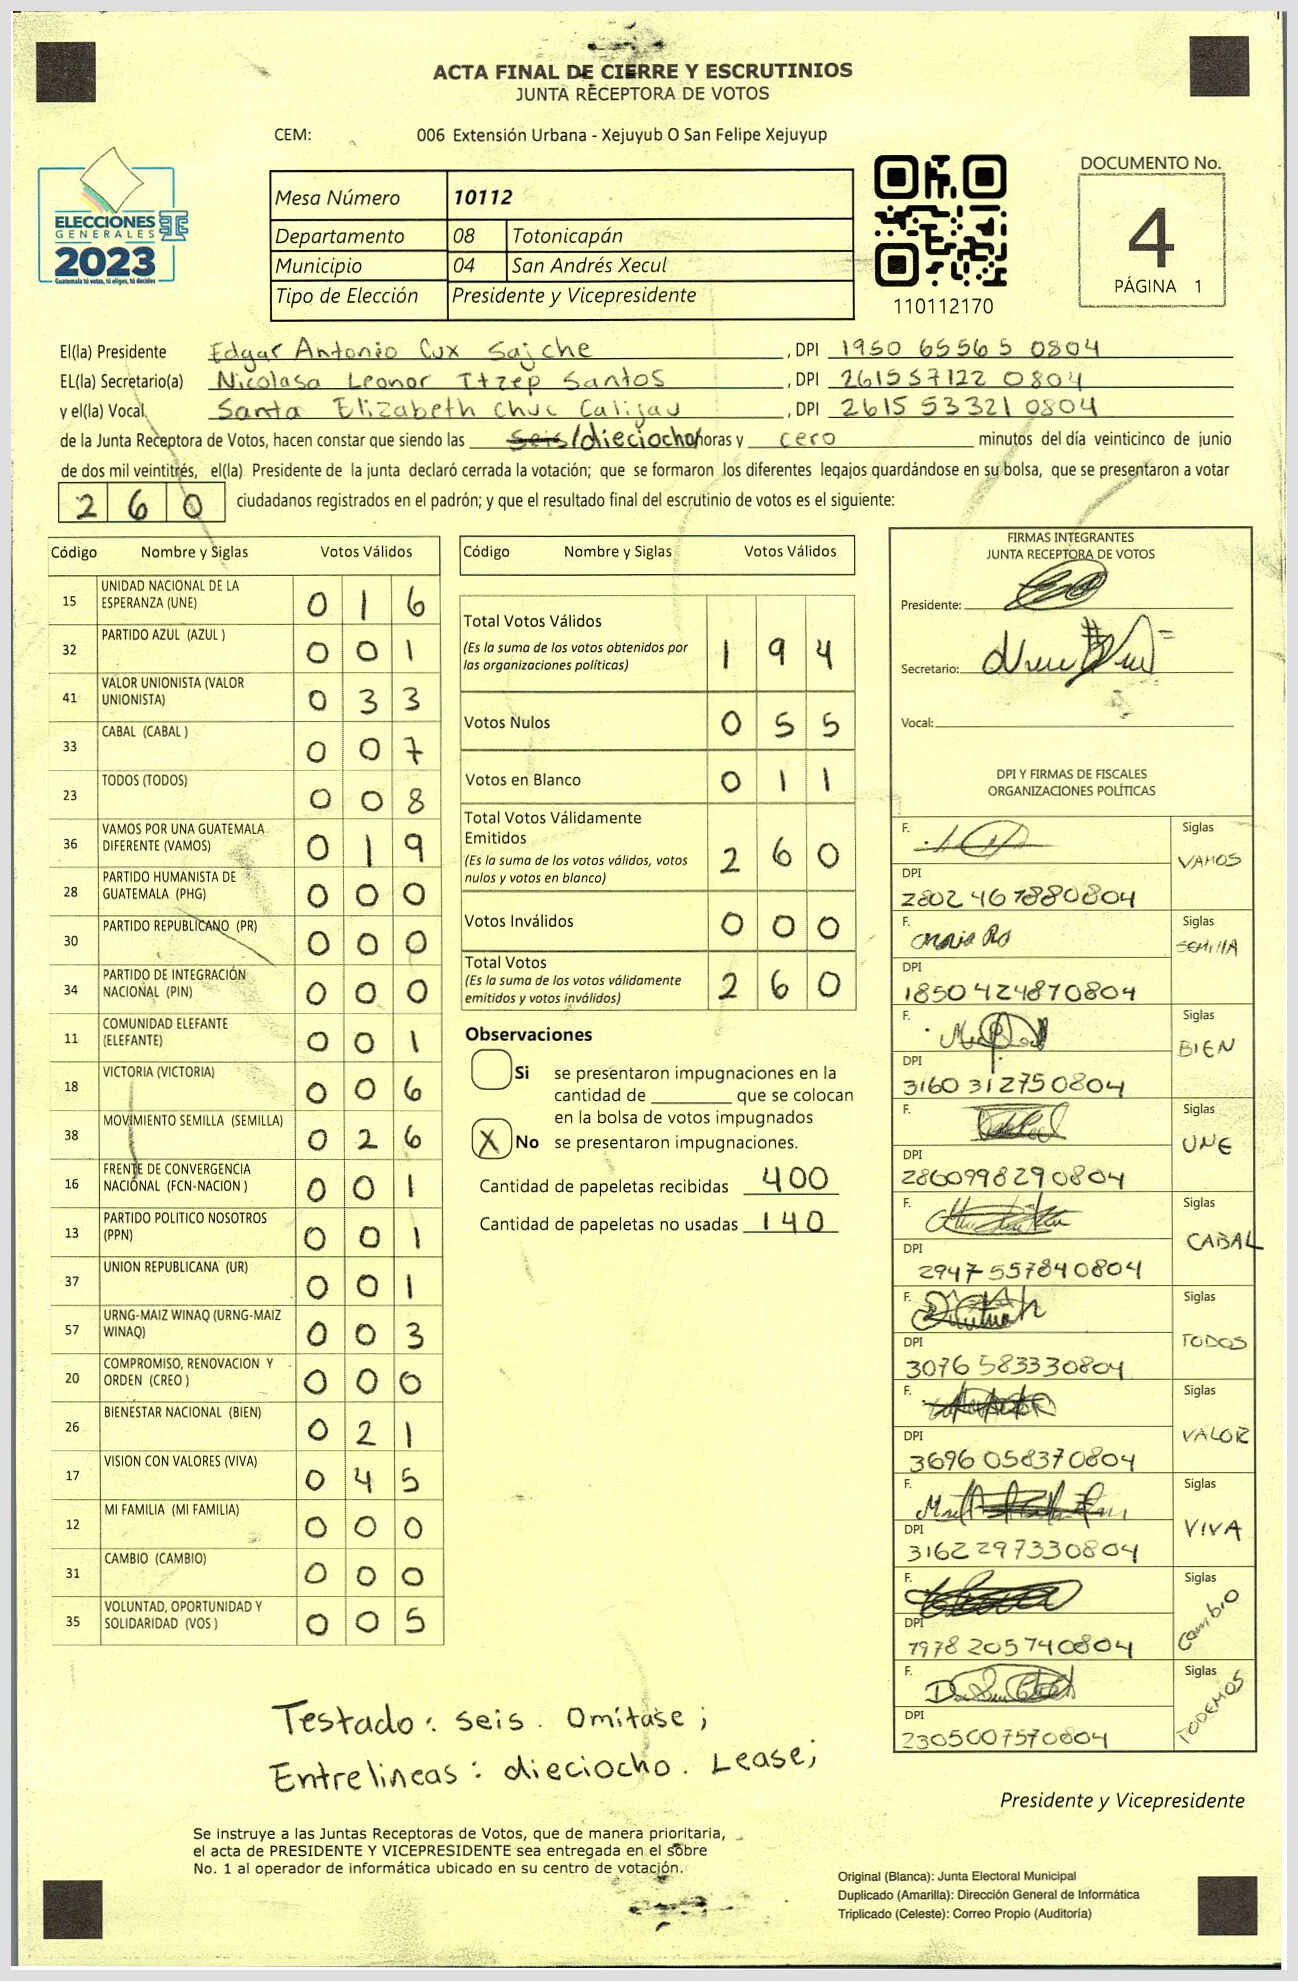 ACTA FINAL DE CIERRE Y ESCRUTINIOS
JUNTA RECEPTORA DE VOTOS
CEM: 006 Extensión Urbana - Xejuyub O San Felipe Xejuyup
ELECCIONES
GENERALES
2023
Guatemala tú votas, tú eliges, tú decides
Mesa Número 10112
Departamento 08 Totonicapán
Municipio 04 San Andrés Xecul
Tipo de Elección Presidente y Vicepresidente
110112170
DOCUMENTO No.
4
PÁGINA 1
El(la) Presidente Edgar Antonio Cux Sajche , DPI 1950 65565 0804
EL(la) Secretario(a) Nicolasa Leonor Itzep Santos , DPI 261557122 0804
y el(la) Vocal Santa Elizabeth Chuc Calijau , DPI 2615 53321 0804
de la Junta Receptora de Votos, hacen constar que siendo las seis/dieciocho/horas y cero minutos del día veinticinco de junio
de dos mil veintitrés, el(la) Presidente de la junta declaró cerrada la votación; que se formaron los diferentes legajos guardándose en su bolsa, que se presentaron a votar
260 ciudadanos registrados en el padrón; y que el resultado final del escrutinio de votos es el siguiente:
Código Nombre y Siglas Votos Válidos
15 UNIDAD NACIONAL DE LA ESPERANZA (UNE) 0 1 6
32 PARTIDO AZUL (AZUL ) 0 0 1
41 VALOR UNIONISTA (VALOR UNIONISTA) 0 3 3
33 CABAL (CABAL ) 0 0 7
23 TODOS (TODOS) 0 0 8
36 VAMOS POR UNA GUATEMALA DIFERENTE (VAMOS) 0 1 9
28 PARTIDO HUMANISTA DE GUATEMALA (PHG) 0 0 0
30 PARTIDO REPUBLICANO (PR) 0 0 0
34 PARTIDO DE INTEGRACIÓN NACIONAL (PIN) 0 0 0
11 COMUNIDAD ELEFANTE (ELEFANTE) 0 0 1
18 VICTORIA (VICTORIA) 0 0 6
38 MOVIMIENTO SEMILLA (SEMILLA) 0 2 6
16 FRENTE DE CONVERGENCIA NACIONAL (FCN-NACION ) 0 0 1
13 PARTIDO POLITICO NOSOTROS (PPN) 0 0 1
37 UNION REPUBLICANA (UR) 0 0 1
57 URNG-MAIZ WINAQ (URNG-MAIZ WINAQ) 0 0 3
20 COMPROMISO, RENOVACION Y ORDEN (CREO ) 0 0 0
26 BIENESTAR NACIONAL (BIEN) 0 2 1
17 VISION CON VALORES (VIVA) 0 4 5
12 MI FAMILIA (MI FAMILIA) 0 0 0
31 CAMBIO (CAMBIO) 0 0 0
35 VOLUNTAD, OPORTUNIDAD Y SOLIDARIDAD (VOS ) 0 0 5
Código Nombre y Siglas Votos Válidos
Total Votos Válidos 1 9 4
(Es la suma de los votos obtenidos por
las organizaciones políticas)
Votos Nulos 0 5 5
Votos en Blanco 0 1 1
Total Votos Válidamente
Emitidos 2 6 0
(Es la suma de los votos válidos, votos
nulos y votos en blanco)
Votos Inválidos 0 0 0
Total Votos 2 6 0
(Es la suma de los votos válidamente
emitidos y votos inválidos)
Observaciones
Si se presentaron impugnaciones en la
cantidad de ________ que se colocan
en la bolsa de votos impugnados
X No se presentaron impugnaciones.
Cantidad de papeletas recibidas 400
Cantidad de papeletas no usadas 140
FIRMAS INTEGRANTES
JUNTA RECEPTORA DE VOTOS
Presidente:
Secretario:
Vocal:
DPI Y FIRMAS DE FISCALES
ORGANIZACIONES POLÍTICAS
F. Siglas VAMOS
DPI
2802 461880804
F. Siglas SEMILLA
DPI
1850 424870804
F. Siglas BIEN
DPI
3160 312750804
F. Siglas UNE
DPI
2860998290804
F. Siglas CABAL
DPI
2947 557840804
F. Siglas TODOS
DPI
3076 583330804
F. Siglas VALOR
DPI
3696 058370804
F. Siglas VIVA
DPI
3162297330804
F. Siglas Cambio
DPI
1978 205740804
F. Siglas TODEMOS
DPI
2305007570804
Testado: seis. Omitase;
Entrelineas: dieciocho. Lease;
Presidente y Vicepresidente
Se instruye a las Juntas Receptoras de Votos, que de manera prioritaria,
el acta de PRESIDENTE Y VICEPRESIDENTE sea entregada en el sobre
No. 1 al operador de informática ubicado en su centro de votación.
Original (Blanca): Junta Electoral Municipal
Duplicado (Amarilla): Dirección General de Informática
Triplicado (Celeste): Correo Propio (Auditoría)